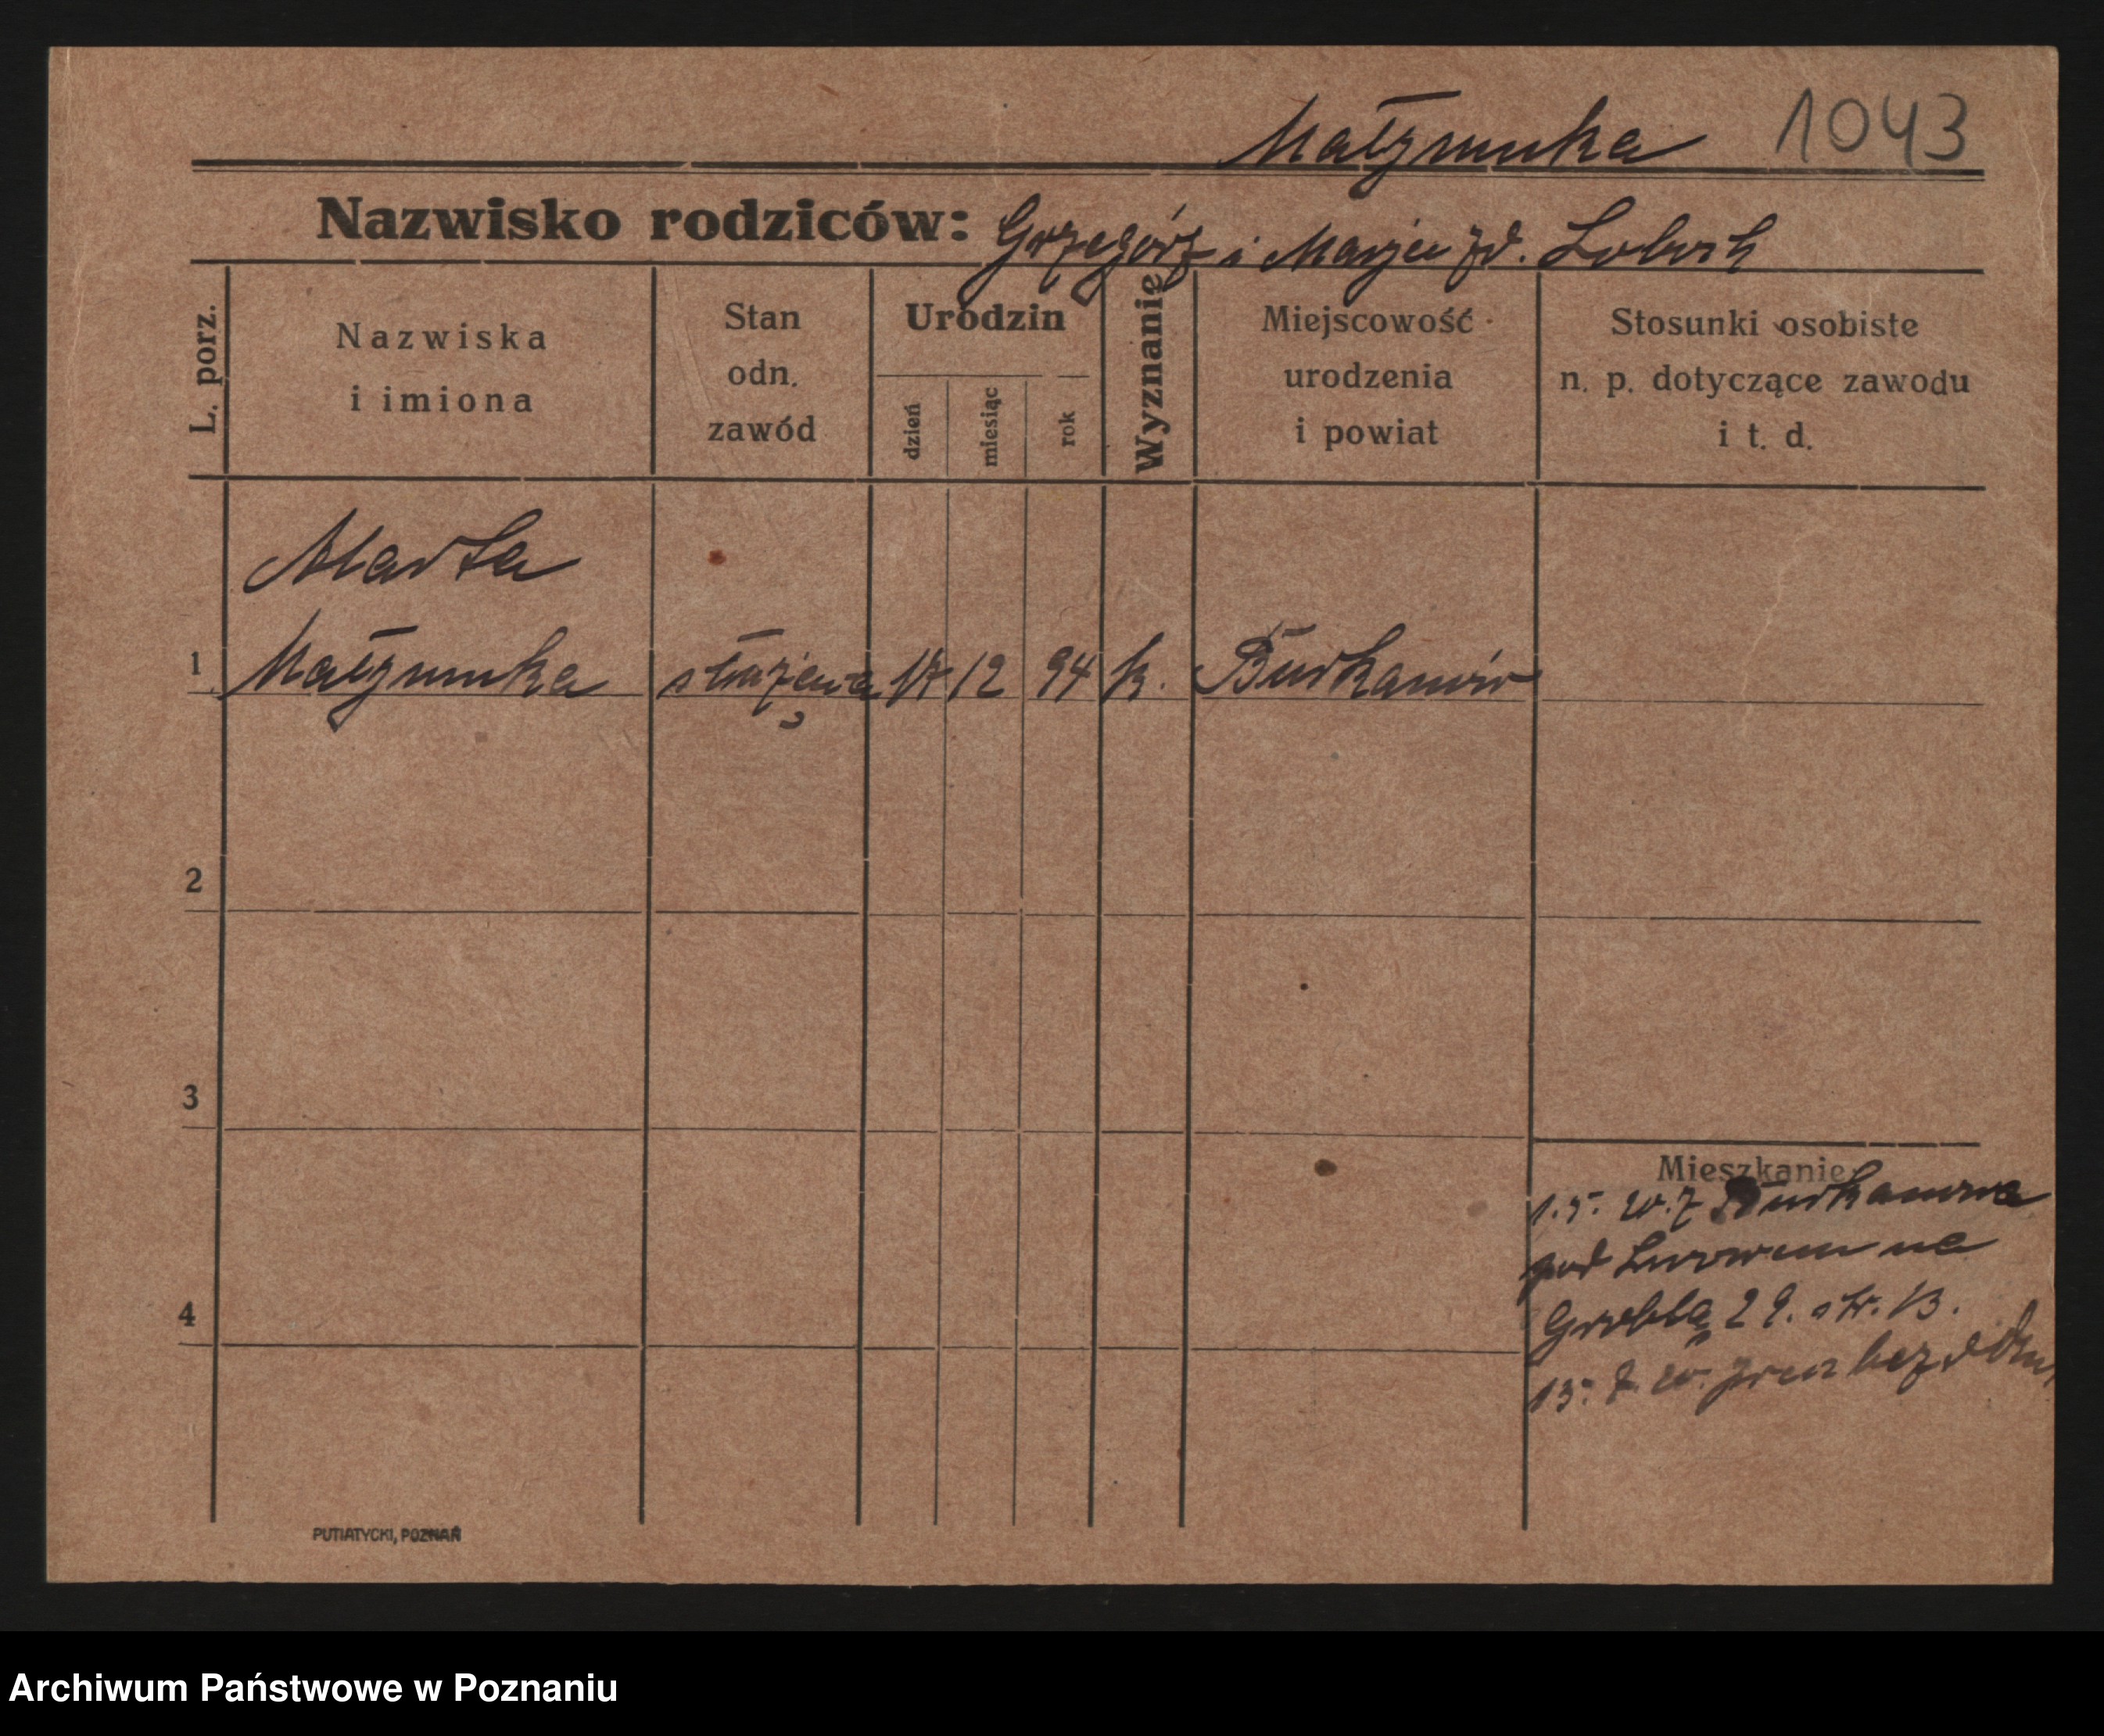 Małzmuka 1043
Nazwisko rodziców: Grzegórz i Marja zd.
L. porz.
Nazwiska
i imiona
Stan
odn.
zawód
Urodzin
dzień
miesiąc
rok
Wyznanie
Miejscowość
urodzenia
i powiat
Stosunki osobiste
n. p. dotyczące zawodu
i t. d.
Marta
1 Małzmuka służąca 17 12 94 k. Burkanów
2
3
4
Mieszkanie:
1.5. 20. z Burkanowa
pod Lwowem na
Groblą 29. str. B.
15. 7. 20. bez
PUTIATYCKI, POZNAŃ
Archiwum Państwowe w Poznaniu